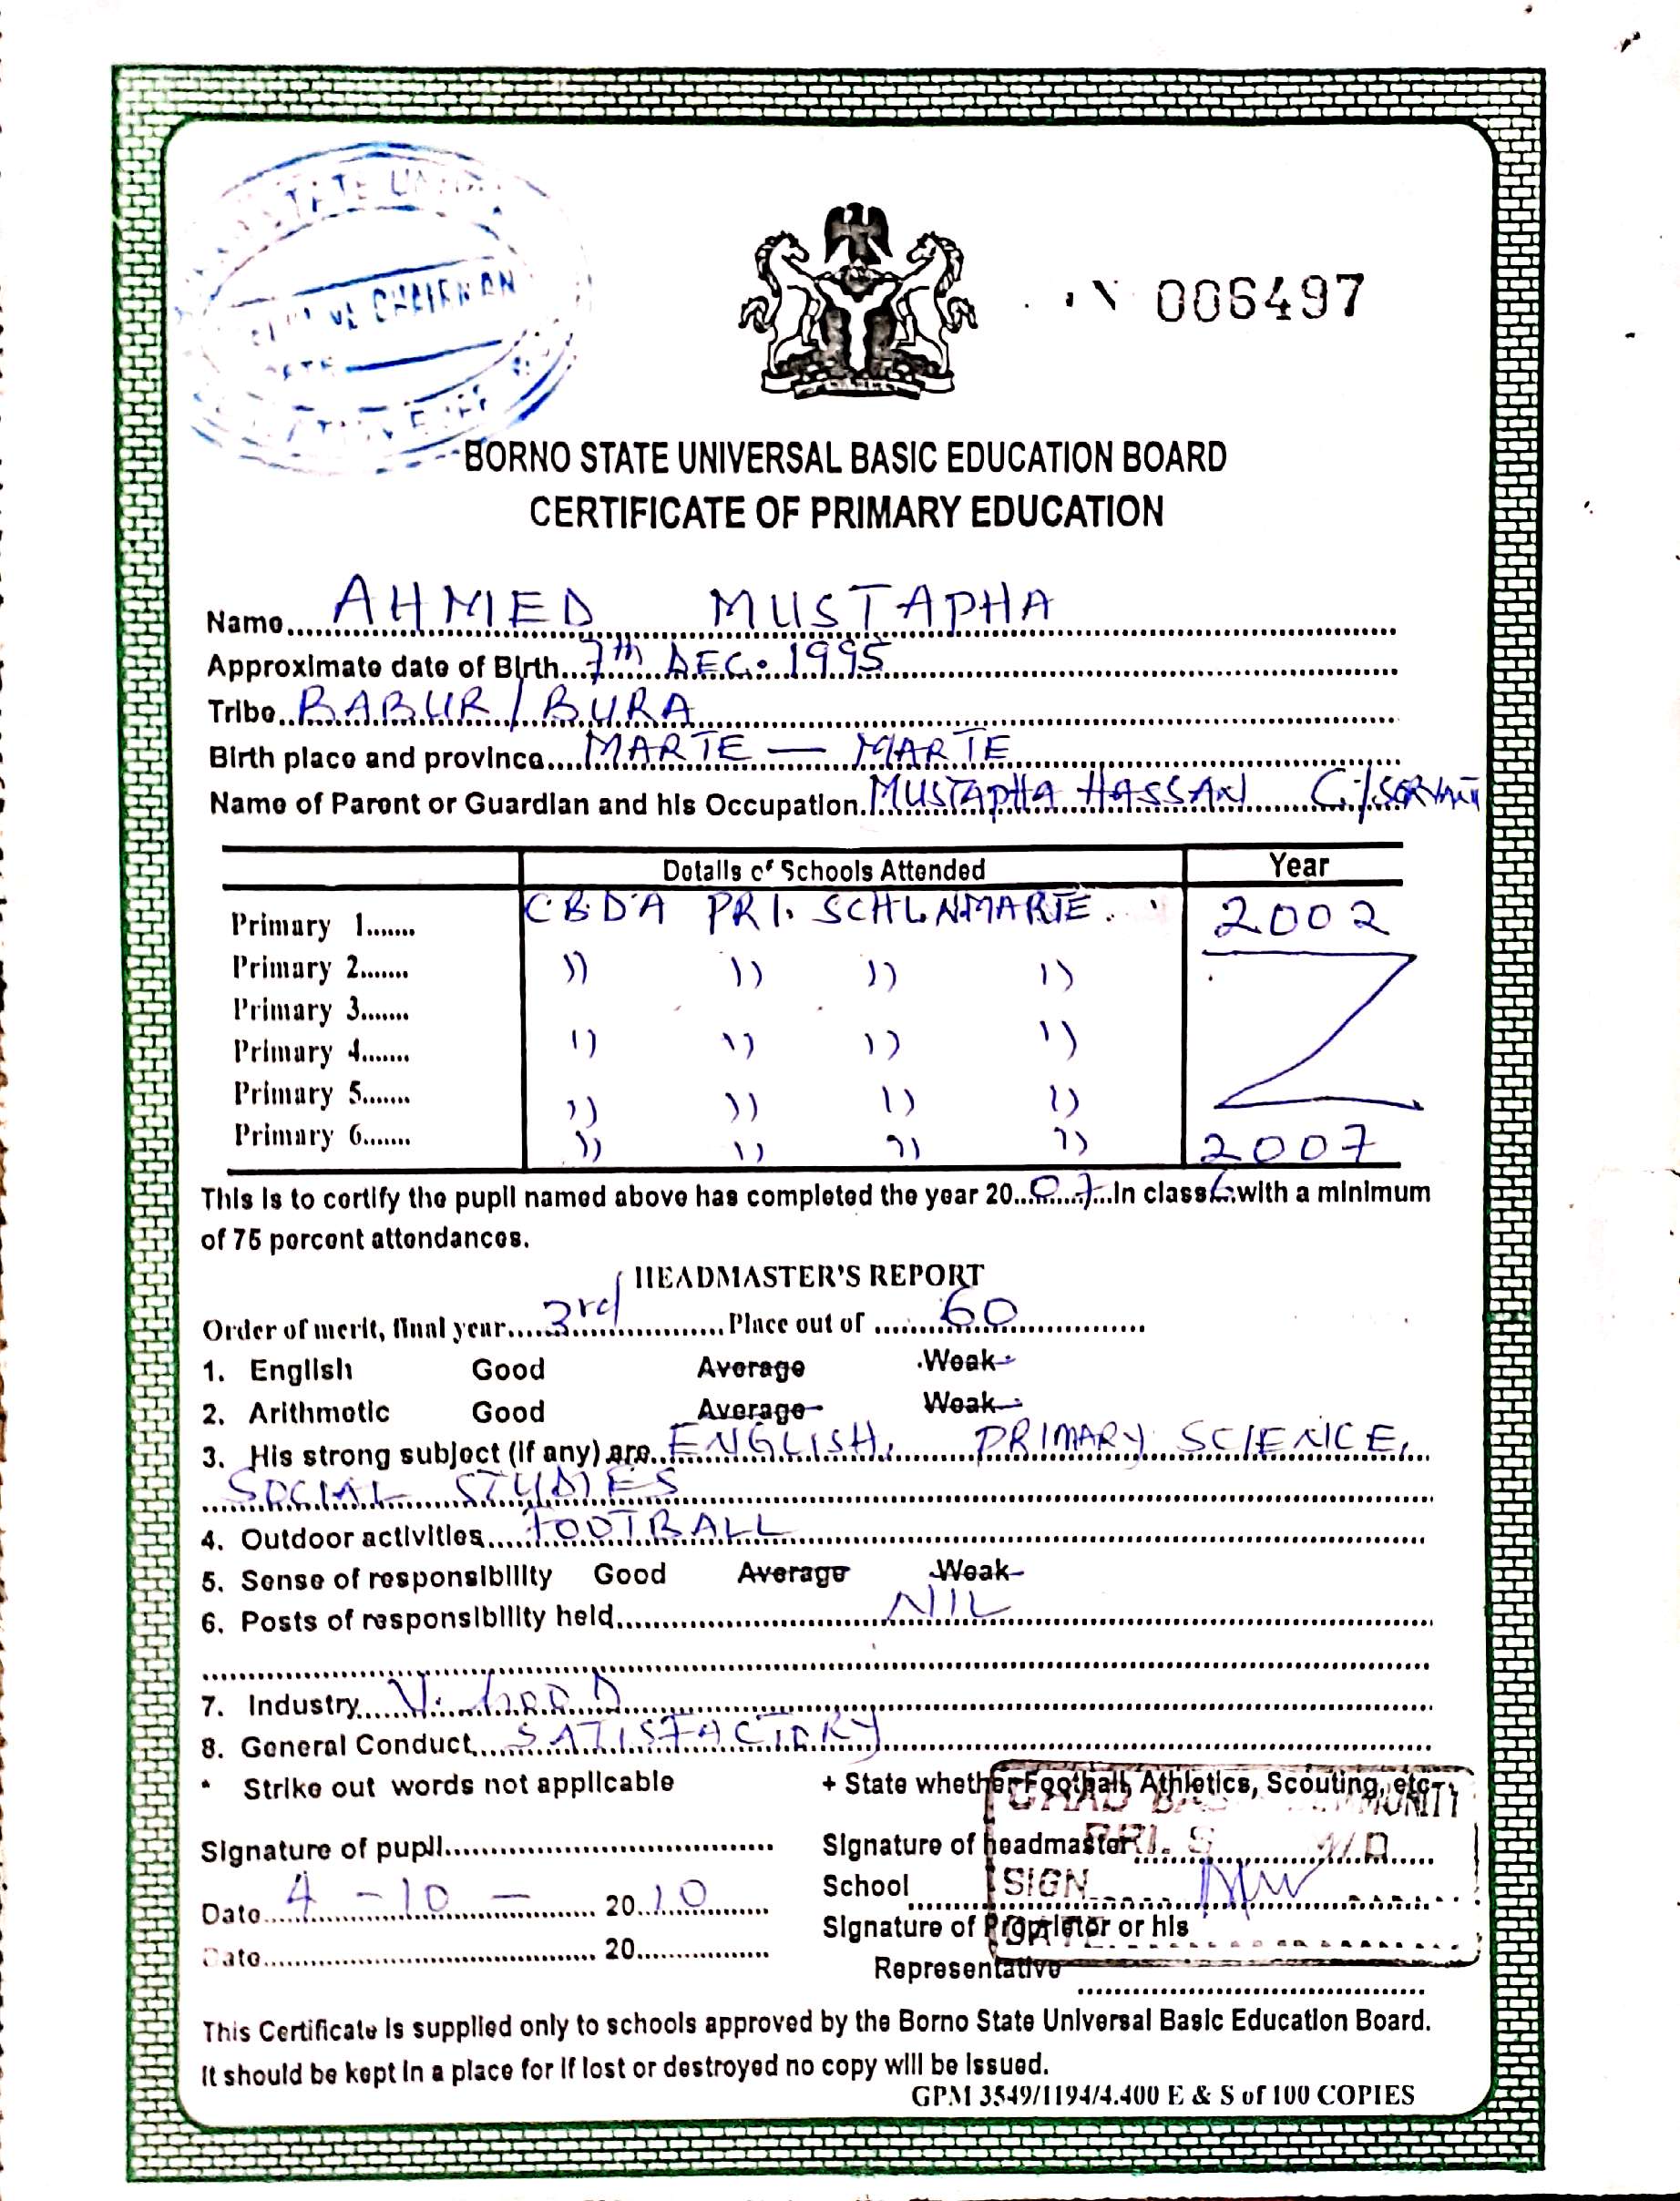 006497
BORNO STATE UNIVERSAL BASIC EDUCATION BOARD
CERTIFICATE OF PRIMARY EDUCATION
Name AHMED MUSTAPHA
Approximate date of Birth 7th DEC. 1995
Tribe BABUR / BURA
Birth place and province MARTE — MARTE
Name of Parent or Guardian and his Occupation MUSTAPHA HASSAN C/SERVANT
Details of Schools Attended Year
Primary 1 CBDA PRI. SCHL NMARTE. 2002
Primary 2 )) )) )) ))
Primary 3
Primary 4 )) )) )) ))
Primary 5 )) )) )) ))
Primary 6 )) )) )) )) 2007
This is to certify the pupil named above has completed the year 20 07 in class 6 with a minimum
of 75 percent attendances.
HEADMASTER'S REPORT
Order of merit, final year 3rd Place out of 60
1. English Good Average Weak
2. Arithmetic Good Average Weak
3. His strong subject (if any) are ENGLISH, PRIMARY SCIENCE,
SOCIAL STUDIES
4. Outdoor activities FOOTBALL
5. Sense of responsibility Good Average Weak
6. Posts of responsibility held NIL
7. Industry V. GOOD
8. General Conduct SATISFACTORY
* Strike out words not applicable + State whether Football, Athletics, Scouting, etc
Signature of pupil Signature of headmaster
School SIGN
Date 4 - 10 - 20 10
Signature of Proprietor or his
Date 20
Representative
This Certificate is supplied only to schools approved by the Borno State Universal Basic Education Board.
It should be kept in a place for if lost or destroyed no copy will be issued.
GPM 3549/1194/4.400 E & S of 100 COPIES